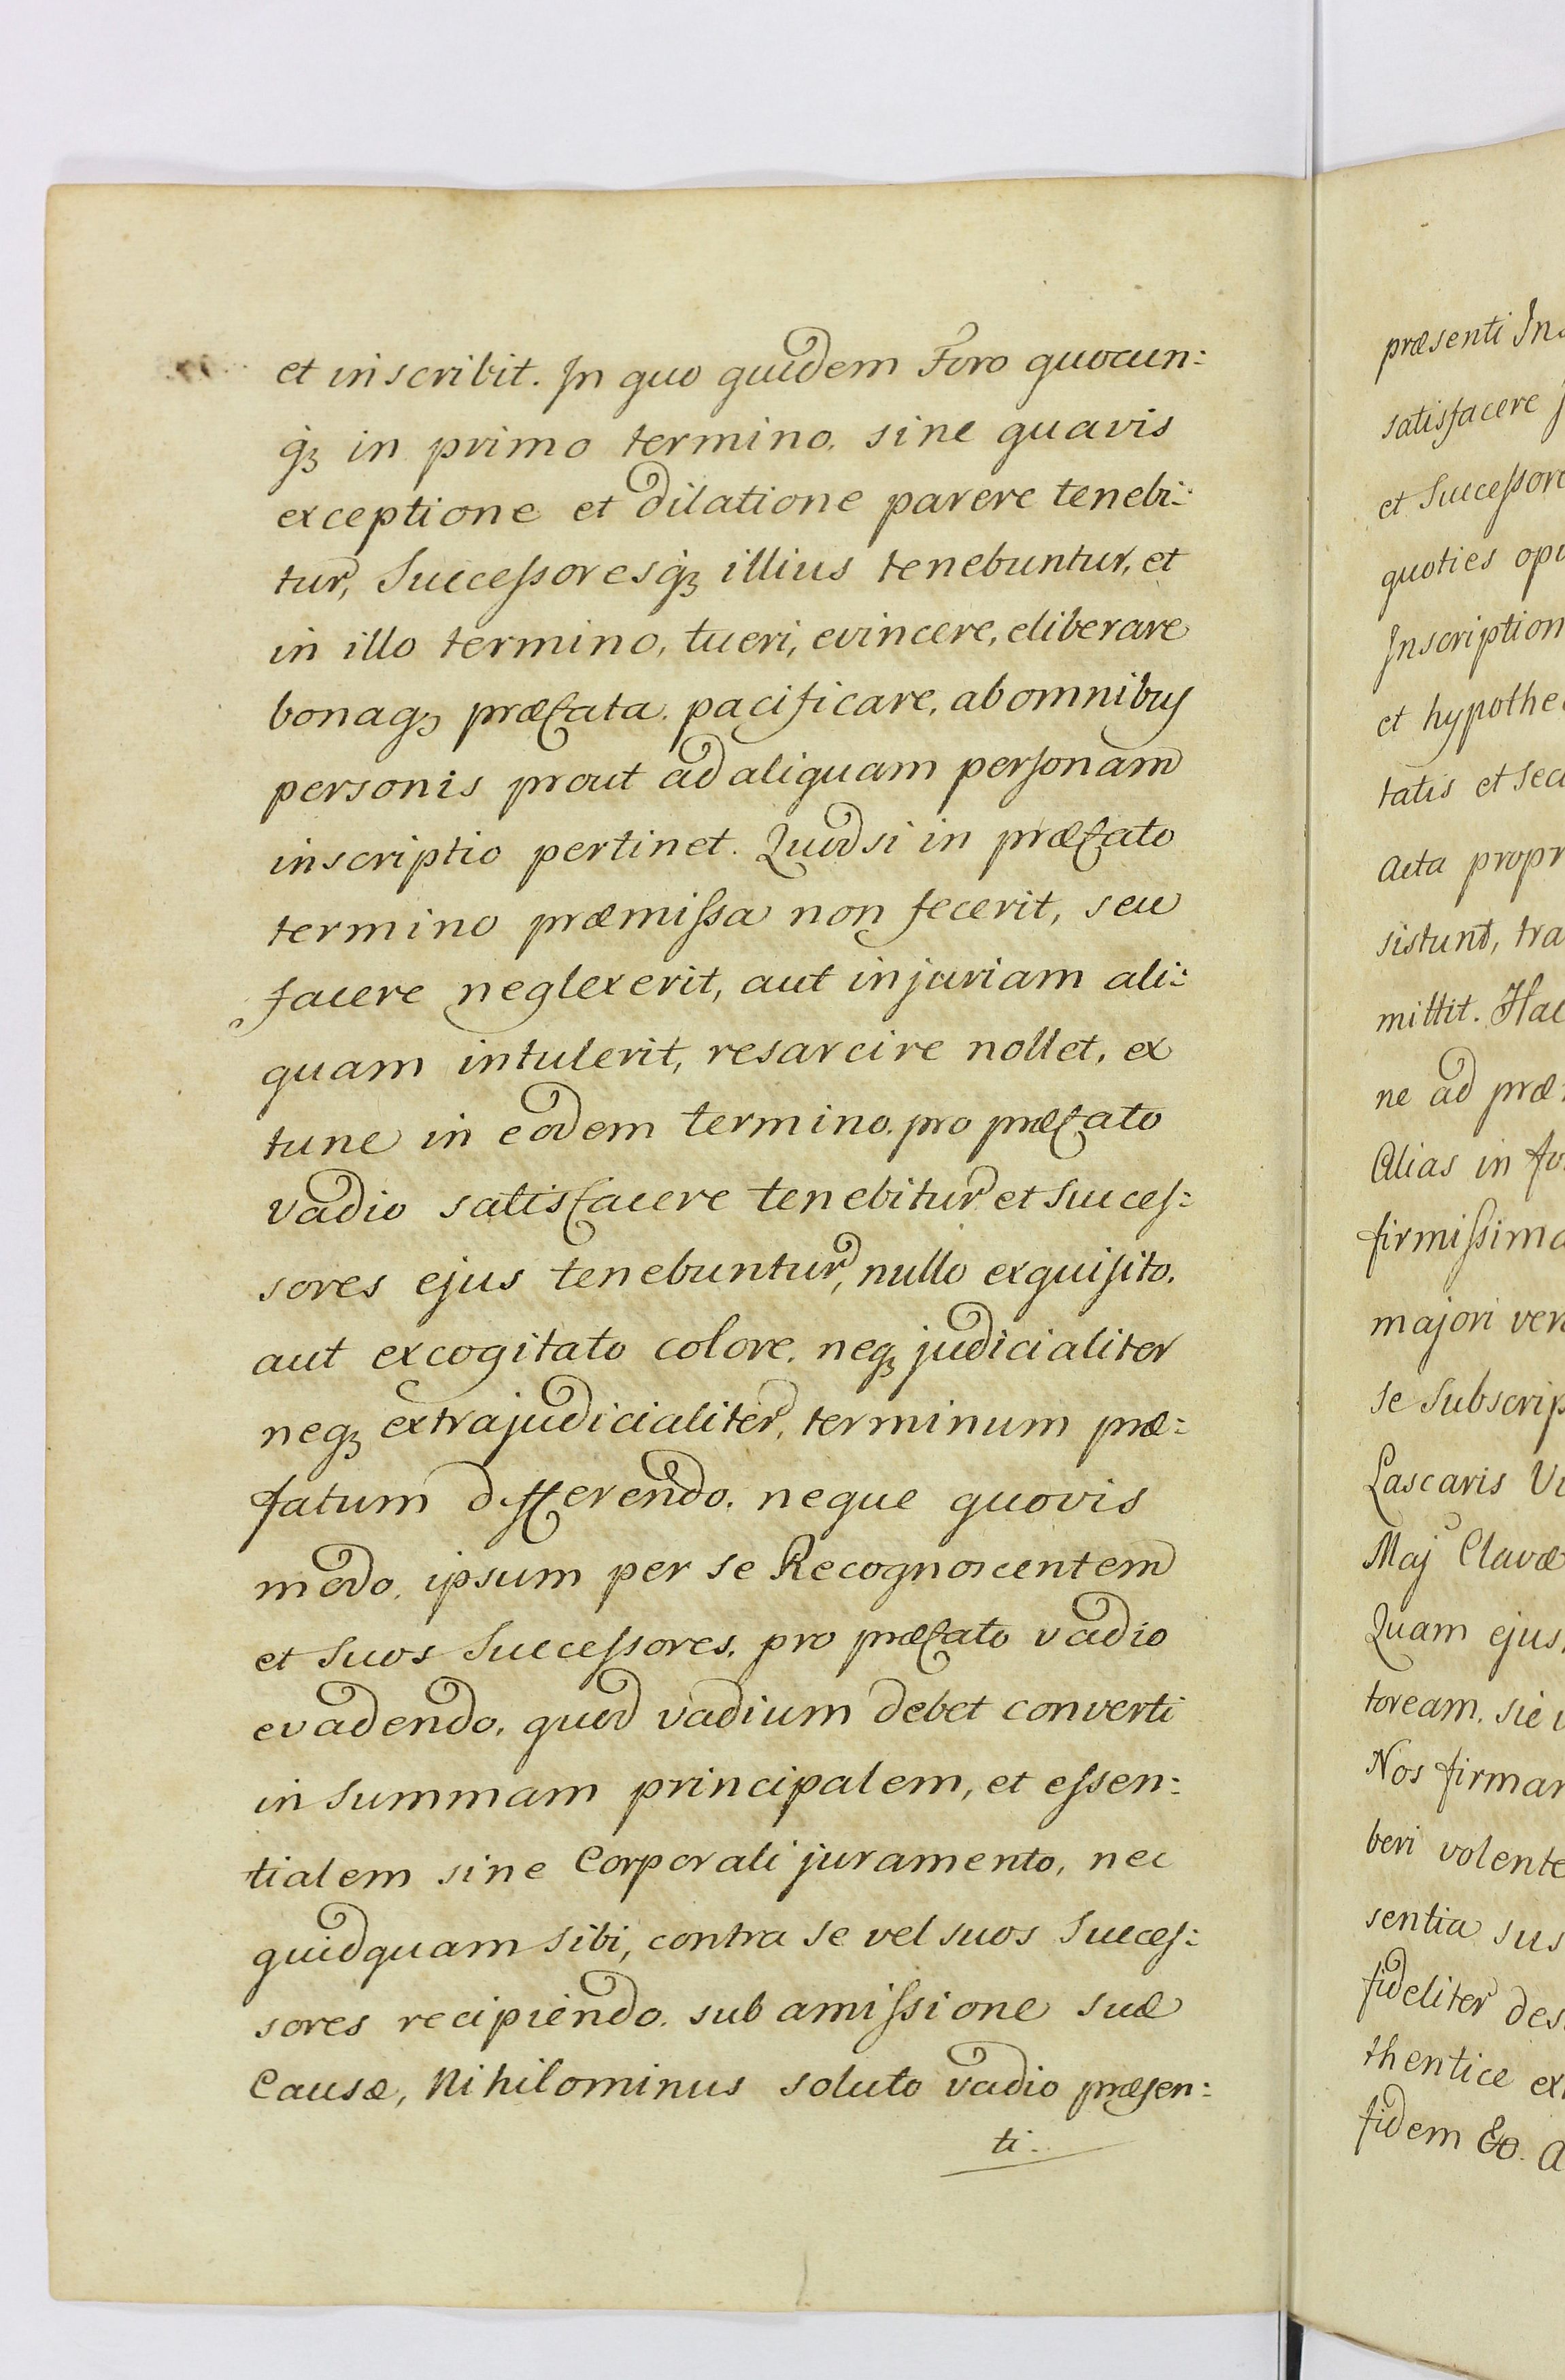 et inscribit. In quo quidem Foro quocun:
qꝫ in primo termino. sine quavis
exceptione et dilatione parere tenebi:
tur, Successoresqꝫ illius tenebuntur, et
in illo termino, tueri, evincere, eliberare
bonaqꝫ præfata. pacificare, ab omnibus
personis prout ad aliquam personam
inscriptio pertinet. Quod si in præfato
termino præmissa non fecerit, seu
facere neglexerit, aut injuriam ali:
quam intulerit, resarcire nollet, ex
tunc in eodem termino. pro præfato
vadio satisfacere tenebitur et Succes:
sores ejus tenebuntur, nullo exquisito.
aut excogitato colore. neqꝫ judicialiter
neqꝫ extrajudicialiter, terminum præ:
fatum differendo. neque quovis
modo. ipsum per se Recognoscentem
et Suos Successores. pro præfato vadio
evadendo, quod vadium debet converti
in Summam principalem, et essen:
tialem sine Corporali juramento, nec
quidquam sibi, contra se vel suos Succes:
sores recipiendo. sub amissione suæ
Causæ, Nihilominus soluto vadio præsen:
ti.
præsenti
satisfacere
et
quoties
et
tatis et
Acta
mittit.
ne ad
Alias in
majori
se
Lascaris
Maj Clavæ
Quam ejus
toream. sic
Nos
beri
sentia
fideliter
thentice
fidem &c.